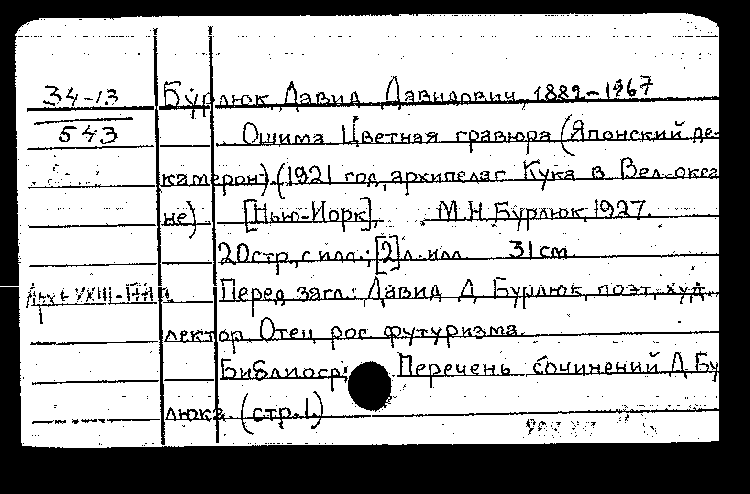 34-13 Бурлюк, Давид Давидович, 1882-1967
543 Ошима Цветная гравюра (Японский де-
камерон) (1921 год, архипелаг Кука в Вел. океа
не) [Нью-Йорк], М.Н. Бурлюк, 1927.
20 стр., с илл.; [2] л. илл. 31 см.
Перед загл.: Давид Д. Бурлюк, поэт, худ.,
лектор. Отец рос. футуризма.
Библиогр.: Перечень сочинений Д. Бу
люка. (стр. 1.)